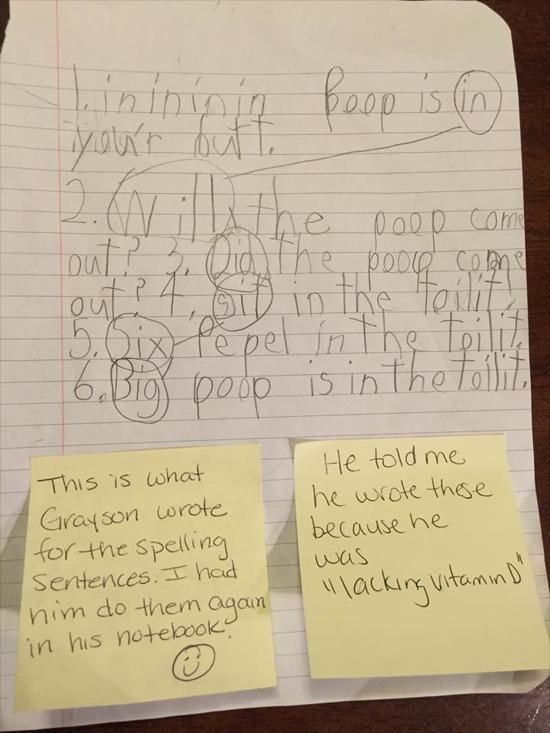 1. in in in in Poop is in
your butt.
2. Will the poop come
out? 3. Did the poop come
out? 4. sit in the toilit,
5. Six Pepel in the toilit.
6. Big poop is in the toilit.
This is what
Grayson wrote
for the spelling
sentences. I had
him do them again
in his notebook.
He told me
he wrote these
because he
was
"lacking vitamin D"